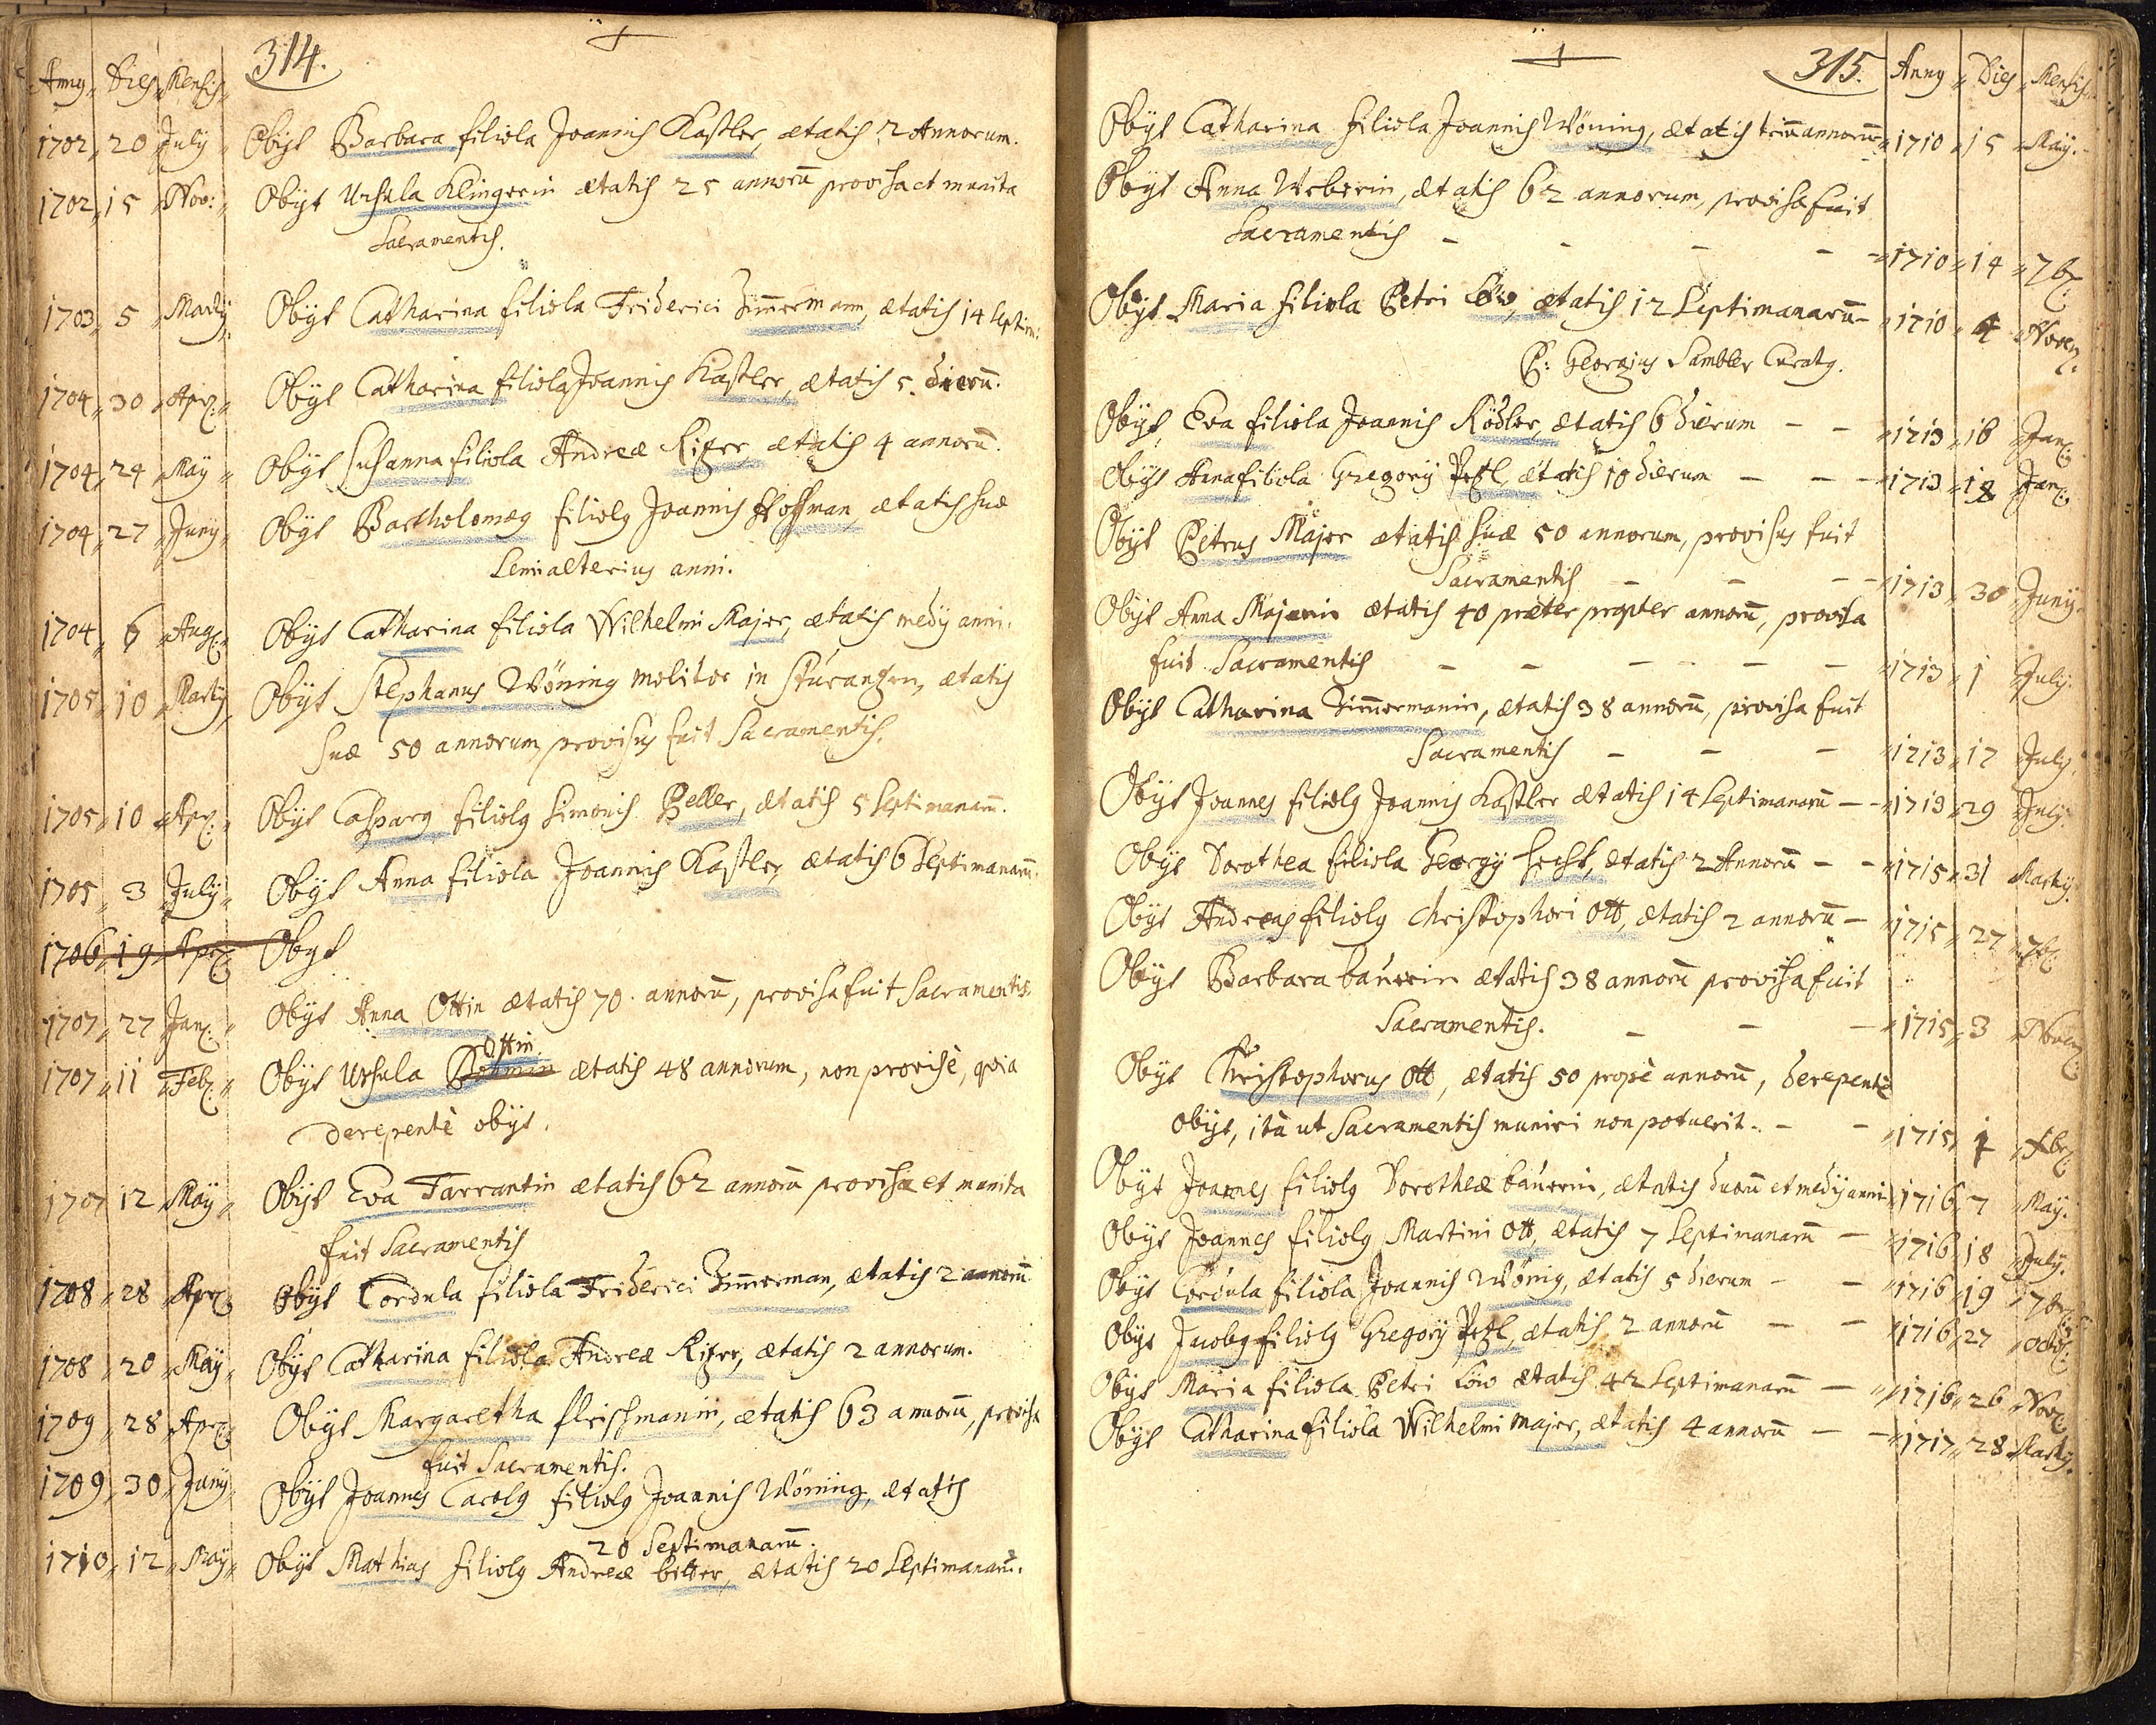 314.
Annus Dies Mensis
1702 20 July Obijt Barbara filiola Joannis Kastler, ætatis 2 Annorum.
1702 15 Nov: Obijt Ursula Klingerin ætatis 25 annorū provisa et munita
Sacramentis.
1703 5 Martij Obijt Catharina filiola Friderici Zim̄ermann, ætatis 14 septim:
1704 30 Apr: Obijt Catharina filiola Joannis Kastler, ætatis 5 dierū.
1704 24 Maÿ Obijt Susanna filiola Andreæ Ritzer, ætatis 4 annorū.
1704 27 Junÿ Obijt Bartholomæus filiolus Joannis Hoffman ætatis suæ
semialterius anni.
1704 6 Aug: Obijt Catharina filiola Wilhelmi Majer, ætatis medij anni.
1705 10 Martij Obijt Stephanus Wöning molitor in ætatis
suæ 50 annorum, provisus fuit Sacramentis.
1705 10 Apr: Obijt Casparus filiolus Simonis Peller, ætatis 5 Septimanarū.
1705 3 July Obijt Anna filiola Joannis Kastler ætatis 6 Septimanarū.
1706 19 Apr: Obijt
1707 27 Jan: Obijt Anna Ottin ætatis 70 annorū, provisa fuit Sacramentis.
Ottin
1707 11 Feb: Obijt Ursula ætatis 48 annorum, non provisè, quia
derepentè obijt.
1707 12 Maÿ Obijt Eva Tarrantin ætatis 62 annorū provisa et munita
fuit Sacramentis
1708 28 Apr: Obijt Cordula filiola Friderici Zim̄erman, ætatis 2 annorū
1708 20 Maÿ Obijt Catharina filiola Andreæ Ritzer, ætatis 2 annorum.
1709 28 Apr: Obijt Margaretha fleischmanin, ætatis 63 annorū, provisa
fuit Sacramentis.
1709 30 Junÿ Obijt Joannes Carolus filiolus Joannis Wöning, ætatis
20 Septimanarū.
1710 12 Maÿ Obijt Mathias filiolus Andreæ bitter, ætatis 20 Septimanarū.
315. Annus Dies Mensis
Obijt Catharina filiola Joannis Wöning, ætatis triū annorū 1710 15 Maÿ.
Obijt Anna Weberin, ætatis 62 annorum, provisa fuit
Sacramentis 1710 14 7br:
Obijt Maria filiola Petri Löw, ætatis 12 Septimanarū 1710 4 Novem:
P: Georgius Sambler Curatus.
Obijt Eva filiola Joannis Rödler, ætatis 6 dierum 1713 16 Jan:
Obijt Anna filiola Gregorij Petzl, ætatis 10 dierum 1713 18 Jan:
Obijt Petrus Majer ætatis suæ 50 annorum, provisus fuit
Sacramentis 1713 30 Junÿ
Obijt Anna Majerin ætatis 40 præter propter annorū, provisa
fuit Sacramentis 1713 1 July.
Obijt Catharina Zim̄ermanin, ætatis 38 annorū, provisa fuit
Sacramentis 1713 17 July.
Obijt Joannes filiolus Joannis Kastler ætatis 14 Septimanarū 1713 29 July.
Obijt Dorothea filiola Georgij hecht, ætatis 2 Annorū 1715 31 Martij.
Obijt Andreas filiolus Christophori Ott, ætatis 2 annorū 1715 27 7br:
Obijt Barbara baŭerin ætatis 38 annorū provisa fuit
Sacramentis. 1715 3 Novem:
Obijt Christophorus Ott, ætatis 50 propè annorū, derepentè
obijt, ità ut Sacramentis muniri non potuerit. 1715 1 Xbr:
Obijt Joannes filiolus Dorotheæ baŭerin, ætatis duorū et medij anni 1716 7 Maÿ.
Obijt Joannes filiolus Martini Ott, ætatis 7 Septimanarū 1716 18 July.
Obijt Cordula filiola Joannis Wönig, ætatis 5 dierum 1716 19 7br:
Obijt Jacobus filiolus Gregorij Petzl, ætatis 2 annorū 1716 27 Octob:
Obijt Maria filiola Petri Löw ætatis 42 Septimanarū 1716 26 Nov:
Obijt Catharina filiola Wilhelmi majer, ætatis 4 annorū 1717 28 Martij.